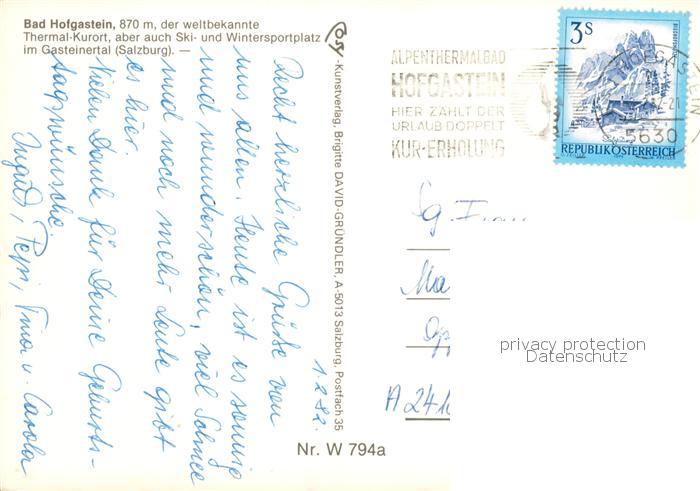 Bad Hofgastein, 870 m, der weltbekannte
Thermal-Kurort, aber auch Ski- und Wintersportplatz
im Gasteinertal (Salzburg). —
1.2.82.
Recht herzliche Grüße von
uns allen. Heute ist es sonnig
und wunderschön, viel Schnee
und noch mehr Leute gibt
es hier.
Vielen Dank für Deine Geburts-
tagswünsche.
Ingrid, Pepi, Timo u. Carola
Cosy-Kunstverlag, Brigitte DAVID-GRÜNDLER, A-5013 Salzburg, Postfach 35
Nr. W 794a
ALPENTHERMALBAD
HOFGASTEIN
HIER ZÄHLT DER
URLAUB DOPPELT
KUR-ERHOLUNG
3S
5630
REPUBLIK ÖSTERREICH
Sg. Frau
Ma
A 241
privacy protection
Datenschutz